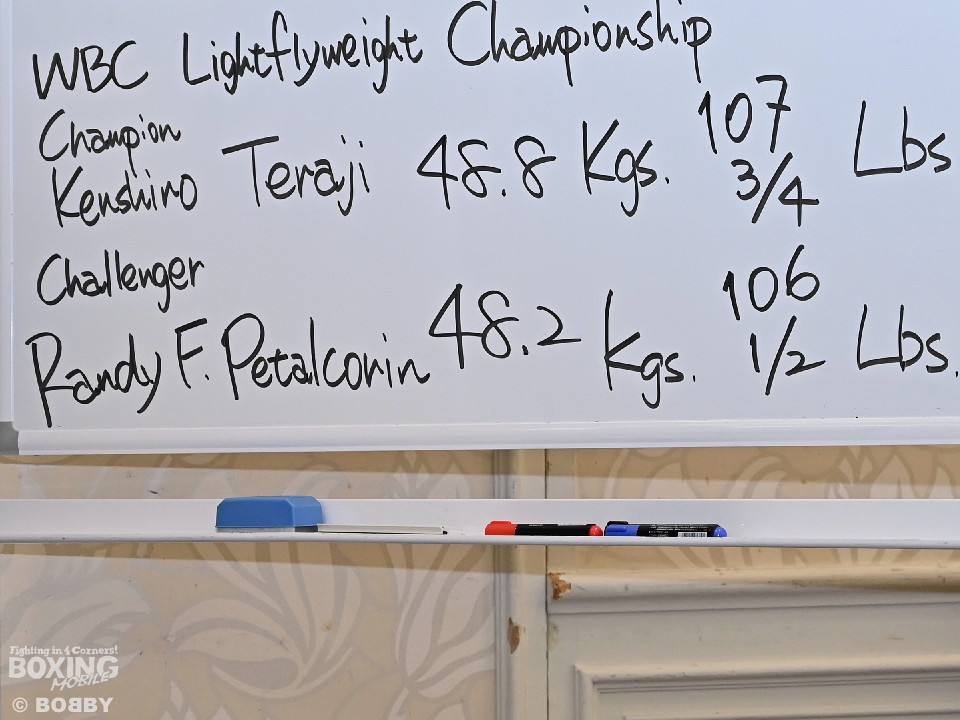 WBC Lightflyweight Championship
Champion
Kenshiro Teraji 48.8 Kgs. 107 3/4 Lbs
Challenger
Randy F. Petalcorin 48.2 Kgs. 106 1/2 Lbs.
Fighting in 4 Corners!
BOXING
MOBILE
© BOBBY